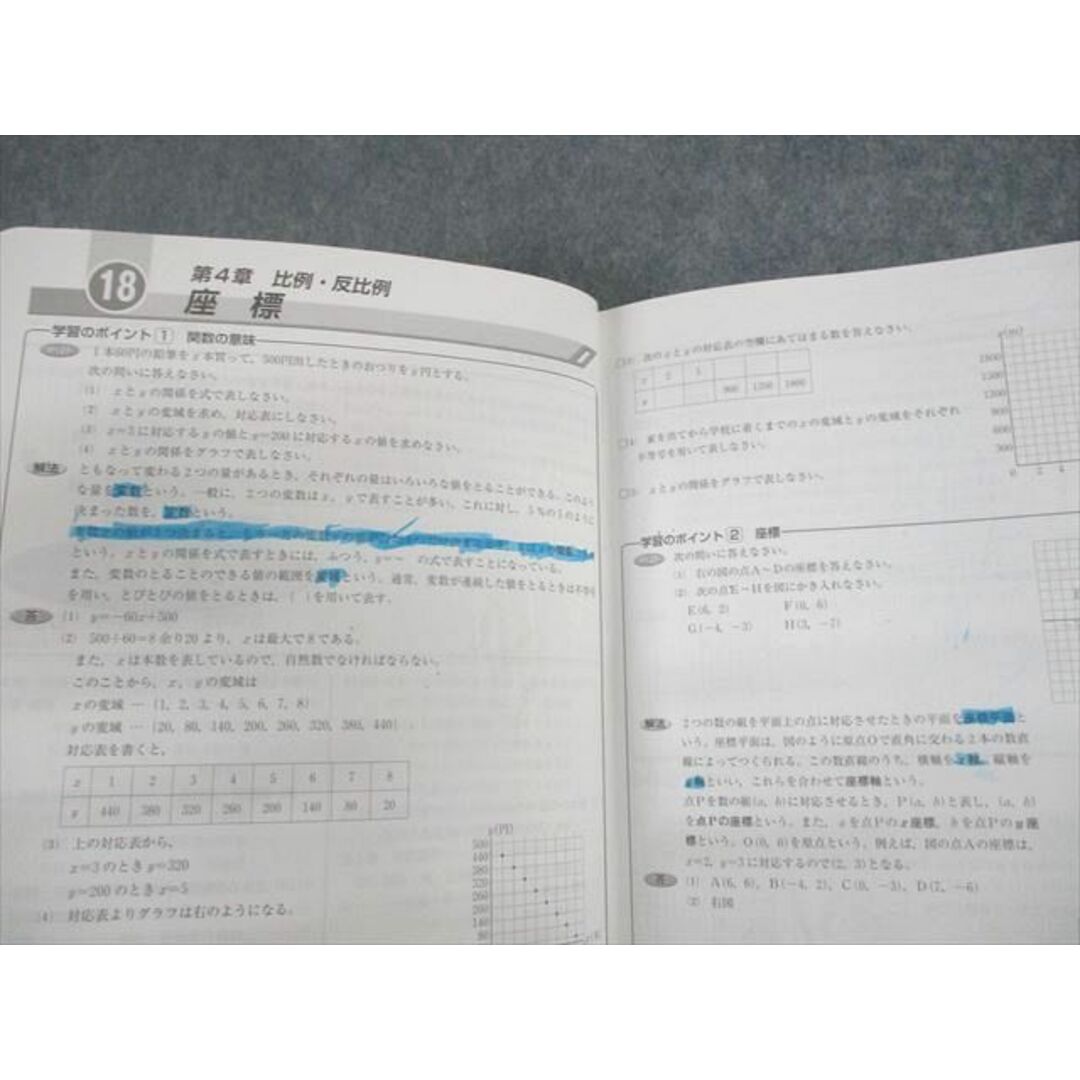 18
第4章 比例・反比例
座 標
学習のポイント 1 関数の意味
1本60円の鉛筆をx本買って,500円出したときのおつりをy円とする。
次の問いに答えなさい。
(1) xとyの関係を式で表しなさい。
(2) xとyの変域を求め,対応表にしなさい。
(3) x=3に対応するyの値とy=200に対応するxの値を求めなさい。
(4) xとyの関係をグラフで表しなさい。
解法 ともなって変わる2つの量があるとき,それぞれの量はいろいろな値をとることができる。このよう
な量を変数という。一般に,2つの変数はx,yで表すことが多い。これに対し,5%の5のように
決まった数を,定数という。
という。xとyの関係を式で表すときには,ふつう,y=… の式で表すことになっている。
また,変数のとることのできる値の範囲を変域という。通常,変数が連続した値をとるときは不等号
を用い,とびとびの値をとるときは,{ }を用いて表す。
答 (1) y=-60x+500
(2) 500÷60=8余り20より,xは最大で8である。
また,xは本数を表しているので,自然数でなければならない。
このことから,x,yの変域は
xの変域 … {1, 2, 3, 4, 5, 6, 7, 8}
yの変域 … {20, 80, 140, 200, 260, 320, 380, 440}
対応表を書くと,
x 1 2 3 4 5 6 7 8
y 440 380 320 260 200 140 80 20
(3) 上の対応表から,
x=3のときy=320
y=200のときx=5
(4) 対応表よりグラフは右のようになる。
y(円)
500
440
380
320
260
200
140
80
次のxとyの対応表の空欄にあてはまる数を答えなさい。
x 2 5
y 900 1260 1800
家を出てから学校に着くまでのxの変域とyの変域をそれぞれ
不等号を用いて表しなさい。
xとyの関係をグラフで表しなさい。
y(m)
1800
1500
1200
900
600
300
0 2 4
学習のポイント 2 座標
次の問いに答えなさい。
(1) 右の図の点A~Dの座標を答えなさい。
(2) 次の点E~Hを図にかき入れなさい。
E(6, 2) F(0, 6)
G(-4, -3) H(3, -7)
解法 2つの数の組を平面上の点に対応させたときの平面を座標平面と
いう。座標平面は,図のように原点Oで直角に交わる2本の数直
線によってつくられる。この数直線のうち,横軸をx軸,縦軸を
y軸といい,これらを合わせて座標軸という。
点Pを数の組(a, b)に対応させるとき,P(a, b)と表し,(a, b)
を点Pの座標という。また,aを点Pのx座標,bを点Pのy座
標という。O(0, 0)を原点という。例えば,図の点Aの座標は,
x=2, y=3に対応するので(2, 3)となる。
答 (1) A(6, 6), B(-4, 2), C(0, -3), D(7, -6)
(2) 右図